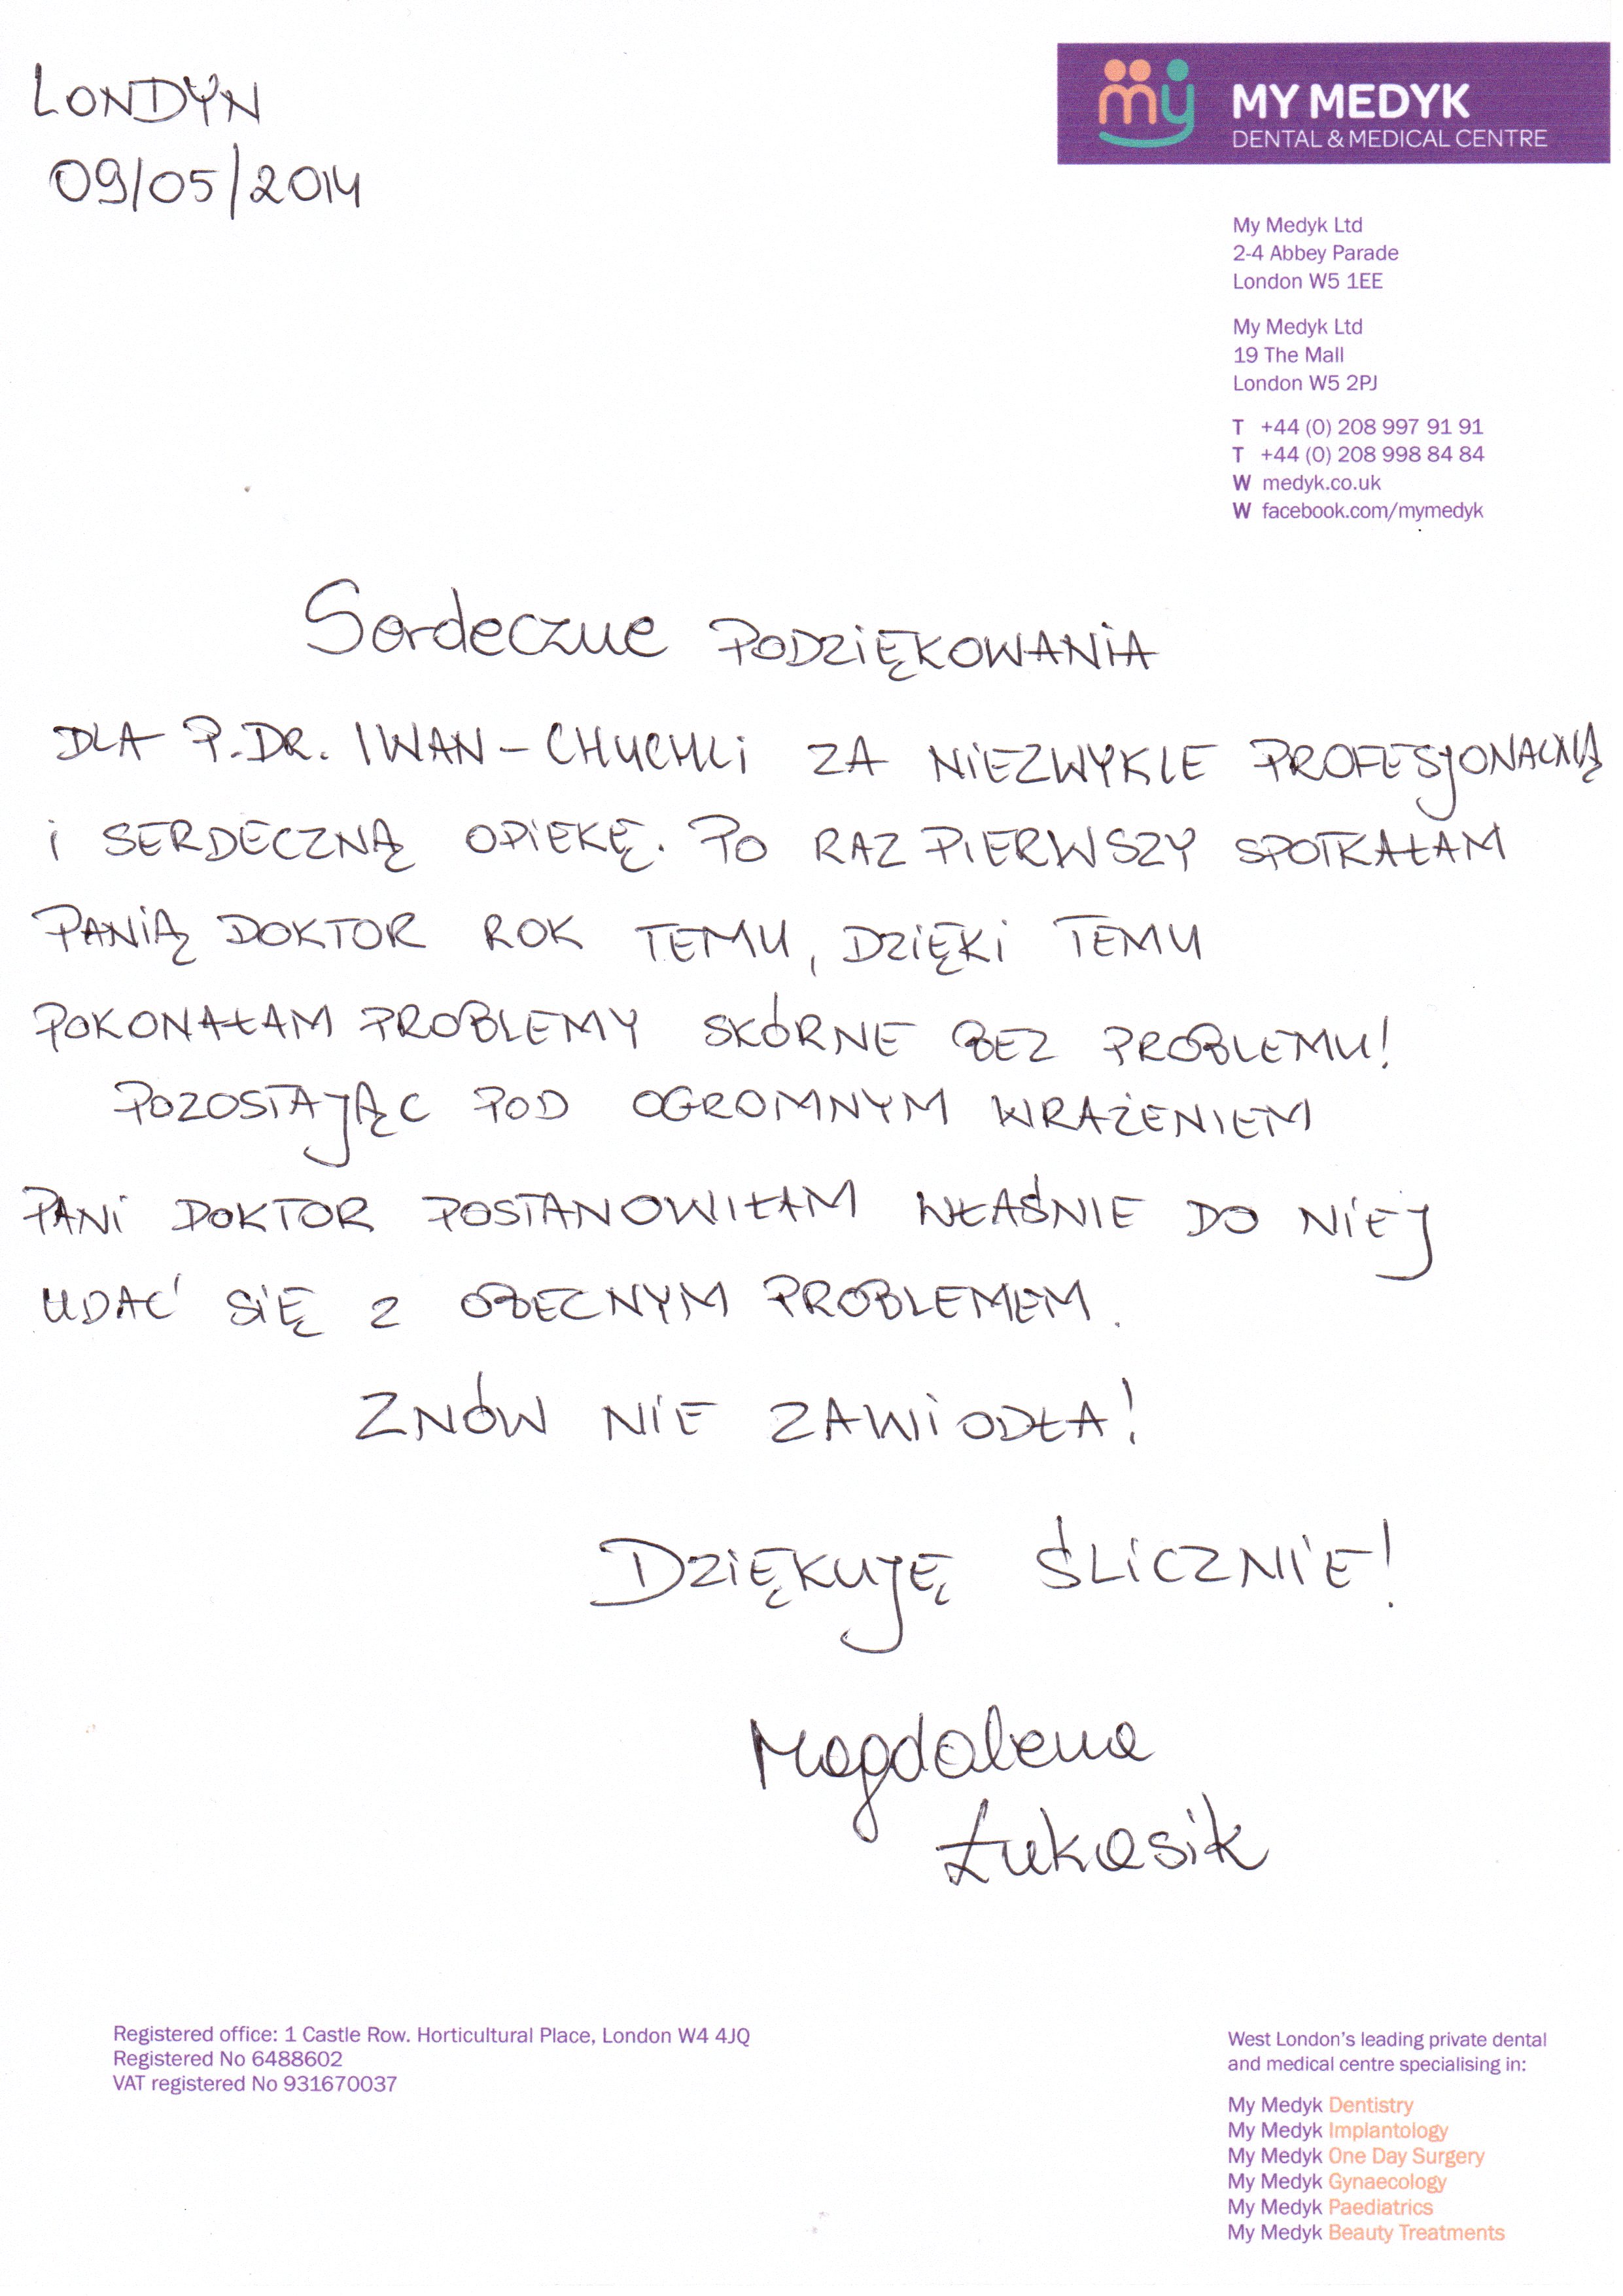 LONDYN
09/05/2014
my MY MEDYK
DENTAL & MEDICAL CENTRE
My Medyk Ltd
2-4 Abbey Parade
London W5 1EE
My Medyk Ltd
19 The Mall
London W5 2PJ
T +44 (0) 208 997 91 91
T +44 (0) 208 998 84 84
W medyk.co.uk
W facebook.com/mymedyk
Serdeczne PODZIĘKOWANIA
DLA P. DR. IWAN - CHUCHLI ZA NIEZWYKLE PROFESJONALNĄ
i SERDECZNĄ OPIEKĘ. PO RAZ PIERWSZY SPOTKAŁAM
PANIĄ DOKTOR ROK TEMU, DZIĘKI TEMU
POKONAŁAM PROBLEMY SKÓRNE BEZ PROBLEMU!
POZOSTAJĄC POD OGROMNYM WRAŻENIEM
PANI DOKTOR POSTANOWIŁAM WŁAŚNIE DO NIEJ
UDAĆ SIĘ Z OBECNYM PROBLEMEM.
ZNÓW NIE ZAWIODŁA!
DZIĘKUJĘ ŚLICZNIE!
Magdalena
Łukasik
Registered office: 1 Castle Row. Horticultural Place, London W4 4JQ
Registered No 6488602
VAT registered No 931670037
West London's leading private dental
and medical centre specialising in:
My Medyk Dentistry
My Medyk Implantology
My Medyk One Day Surgery
My Medyk Gynaecology
My Medyk Paediatrics
My Medyk Beauty Treatments